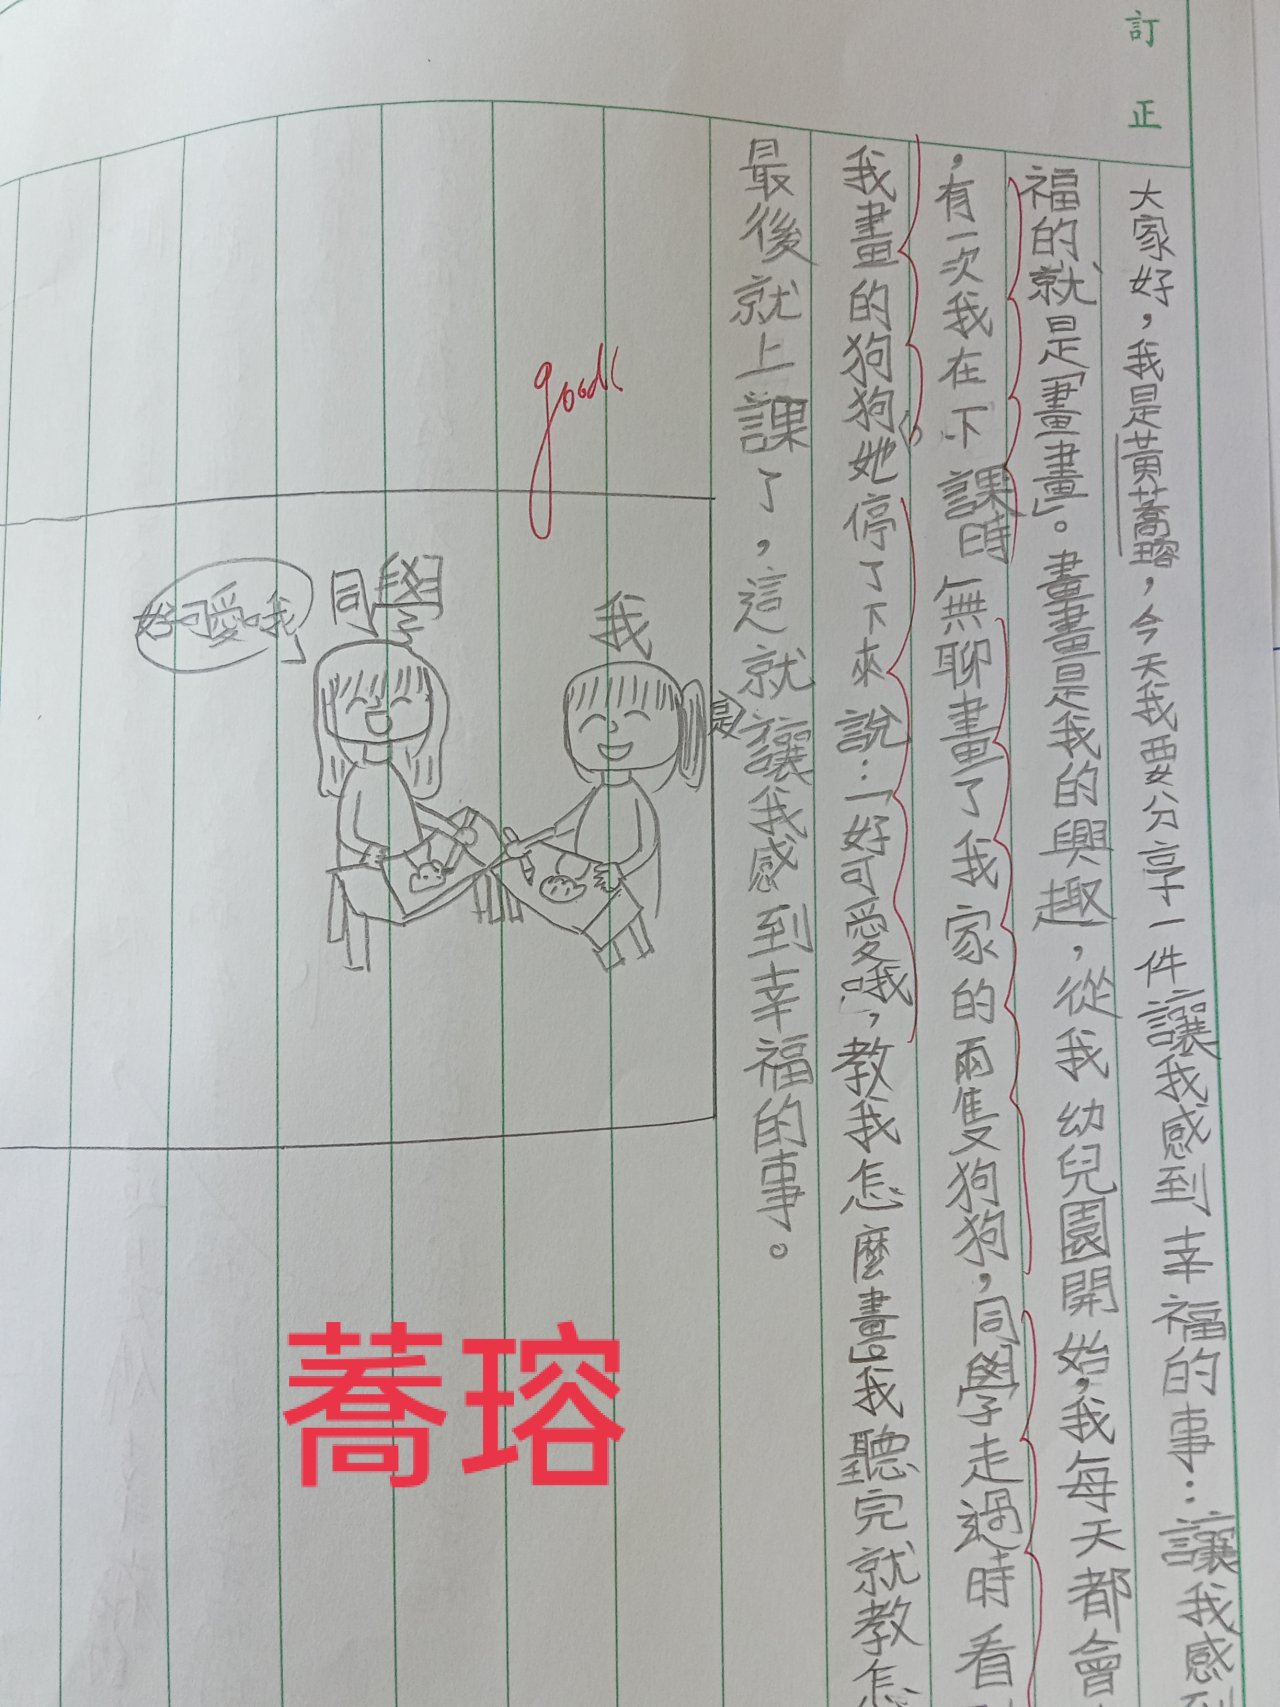 訂正
大家好，我是黃蕎瑢，今天我要分享一件讓我感到幸福的事：讓我感到
福的就是「畫畫」。畫畫是我的興趣，從我幼兒園開始，我每天都會
，有一次我在下課時無聊畫了我家的兩隻狗狗，同學走過時看
我畫的狗狗她停了下來說：「好可愛哦，教我怎麼畫」我聽完就教怎
最後就上課了，這就是讓我感到幸福的事。
good
我
同學
好可愛哦
蕎瑢